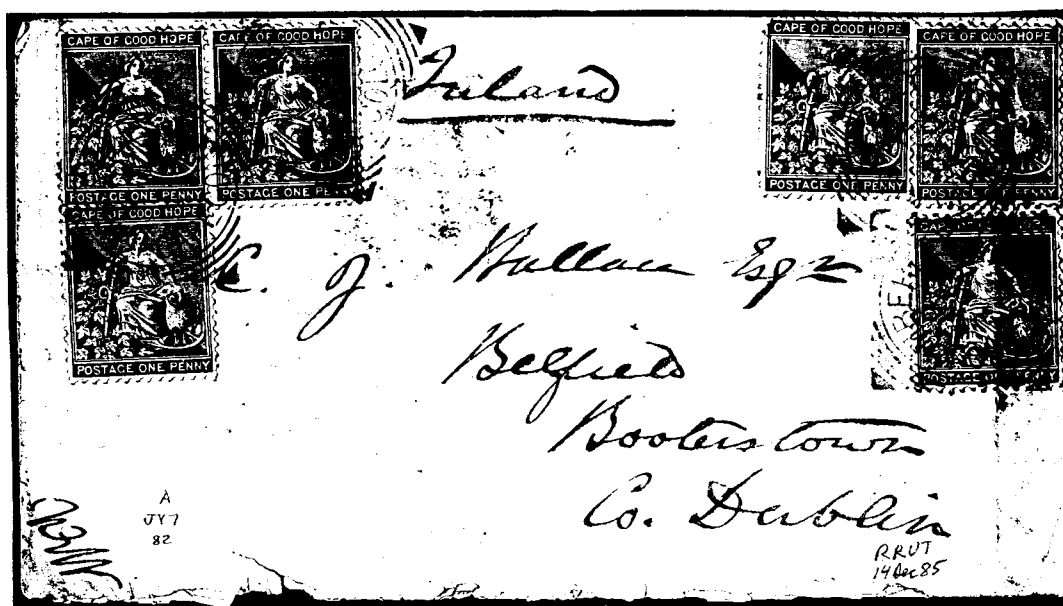 CAPE OF GOOD HOPE
POSTAGE ONE PENNY
CAPE OF GOOD HOPE
POSTAGE ONE PENNY
CAPE OF GOOD HOPE
POSTAGE ONE PENNY
CAPE OF GOOD HOPE
POSTAGE ONE PENNY
CAPE OF GOOD HOPE
POSTAGE ONE PENNY
CAP
POSTAGE ONE PENNY
Ireland
C. J. Wallace Esqre
Belfield
Booterstown
Co. Dublin
A
JY7
82
RRUT
14 Dec 85